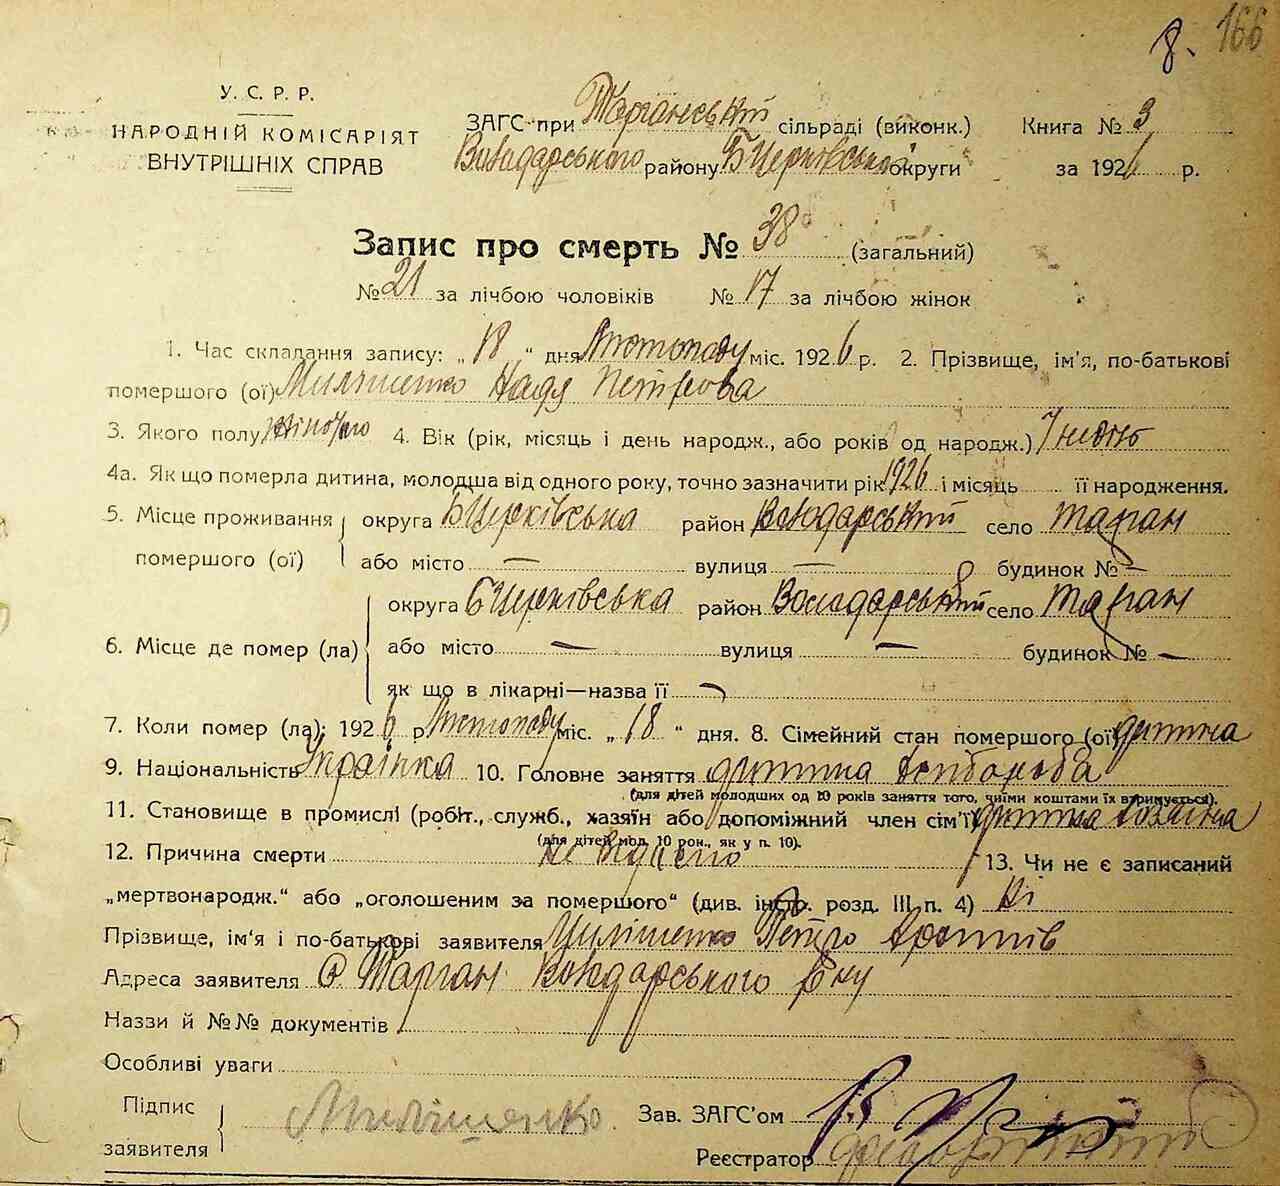 8. 166
У. С. Р. Р.
НАРОДНІЙ КОМІСАРІЯТ
ВНУТРІШНІХ СПРАВ
ЗАГС при Тарганській сільраді (виконк.)
Володарського району Б Церківської округи
Книга № 3
за 1926 р.
Запис про смерть № 38 (загальний)
№ 21 за лічбою чоловіків № 17 за лічбою жінок
1. Час складання запису: „ 18 “ дня Листопаду міс. 1926 р. 2. Прізвище, ім'я, по-батькові
помершого (ої) Надя Петрова
3. Якого полу жіночого 4. Вік (рік, місяць і день народж., або років од народж.) 7 неділь
4а. Як що померла дитина, молодша від одного року, точно зазначити рік 1926 і місяць її народження.
5. Місце проживання округа Б Церківська район Володарський село Тарган
помершого (ої) або місто — вулиця — будинок № —
округа Б Церківська район Володарський село Тарган
6. Місце де помер (ла) або місто — вулиця — будинок № —
як що в лікарні—назва її —
7. Коли помер (ла): 1926 р. Листопаду міс. „ 18 “ дня. 8. Сімейний стан помершого (ої) дитина
9. Національність Українка 10. Головне заняття дитина хлібороба
(для дітей молодших од 10 років заняття того, чиїми коштами їх втримується).
11. Становище в промислі (робіт., служб., хазяїн або допоміжний член сім'ї) дитина хазяїна
(для дітей мол. 10 рок., як у п. 10).
12. Причина смерти не відомо 13. Чи не є записаний
„мертвонародж.“ або „оголошеним за помершого“ (див. інстр. розд. III п. 4) Ні
Прізвище, ім'я і по-батькові заявителя Петро
Адреса заявителя с Тарган Володарського р-ну
Наззи й №№ документів
Особливі уваги
Підпис
заявителя
Зав. ЗАГС'ом
Реєстратор